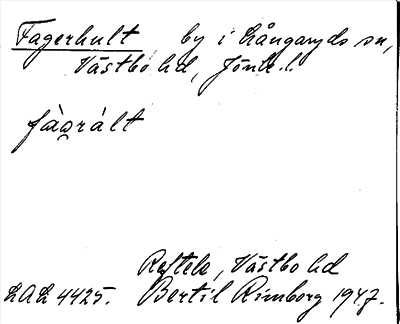 Fagerhult by i Långaryds sn,
Västbo hd, Jönk.l.
fàgrált
Reftele, Västbo hd
LAL 4425. Bertil Rimborg 1947.